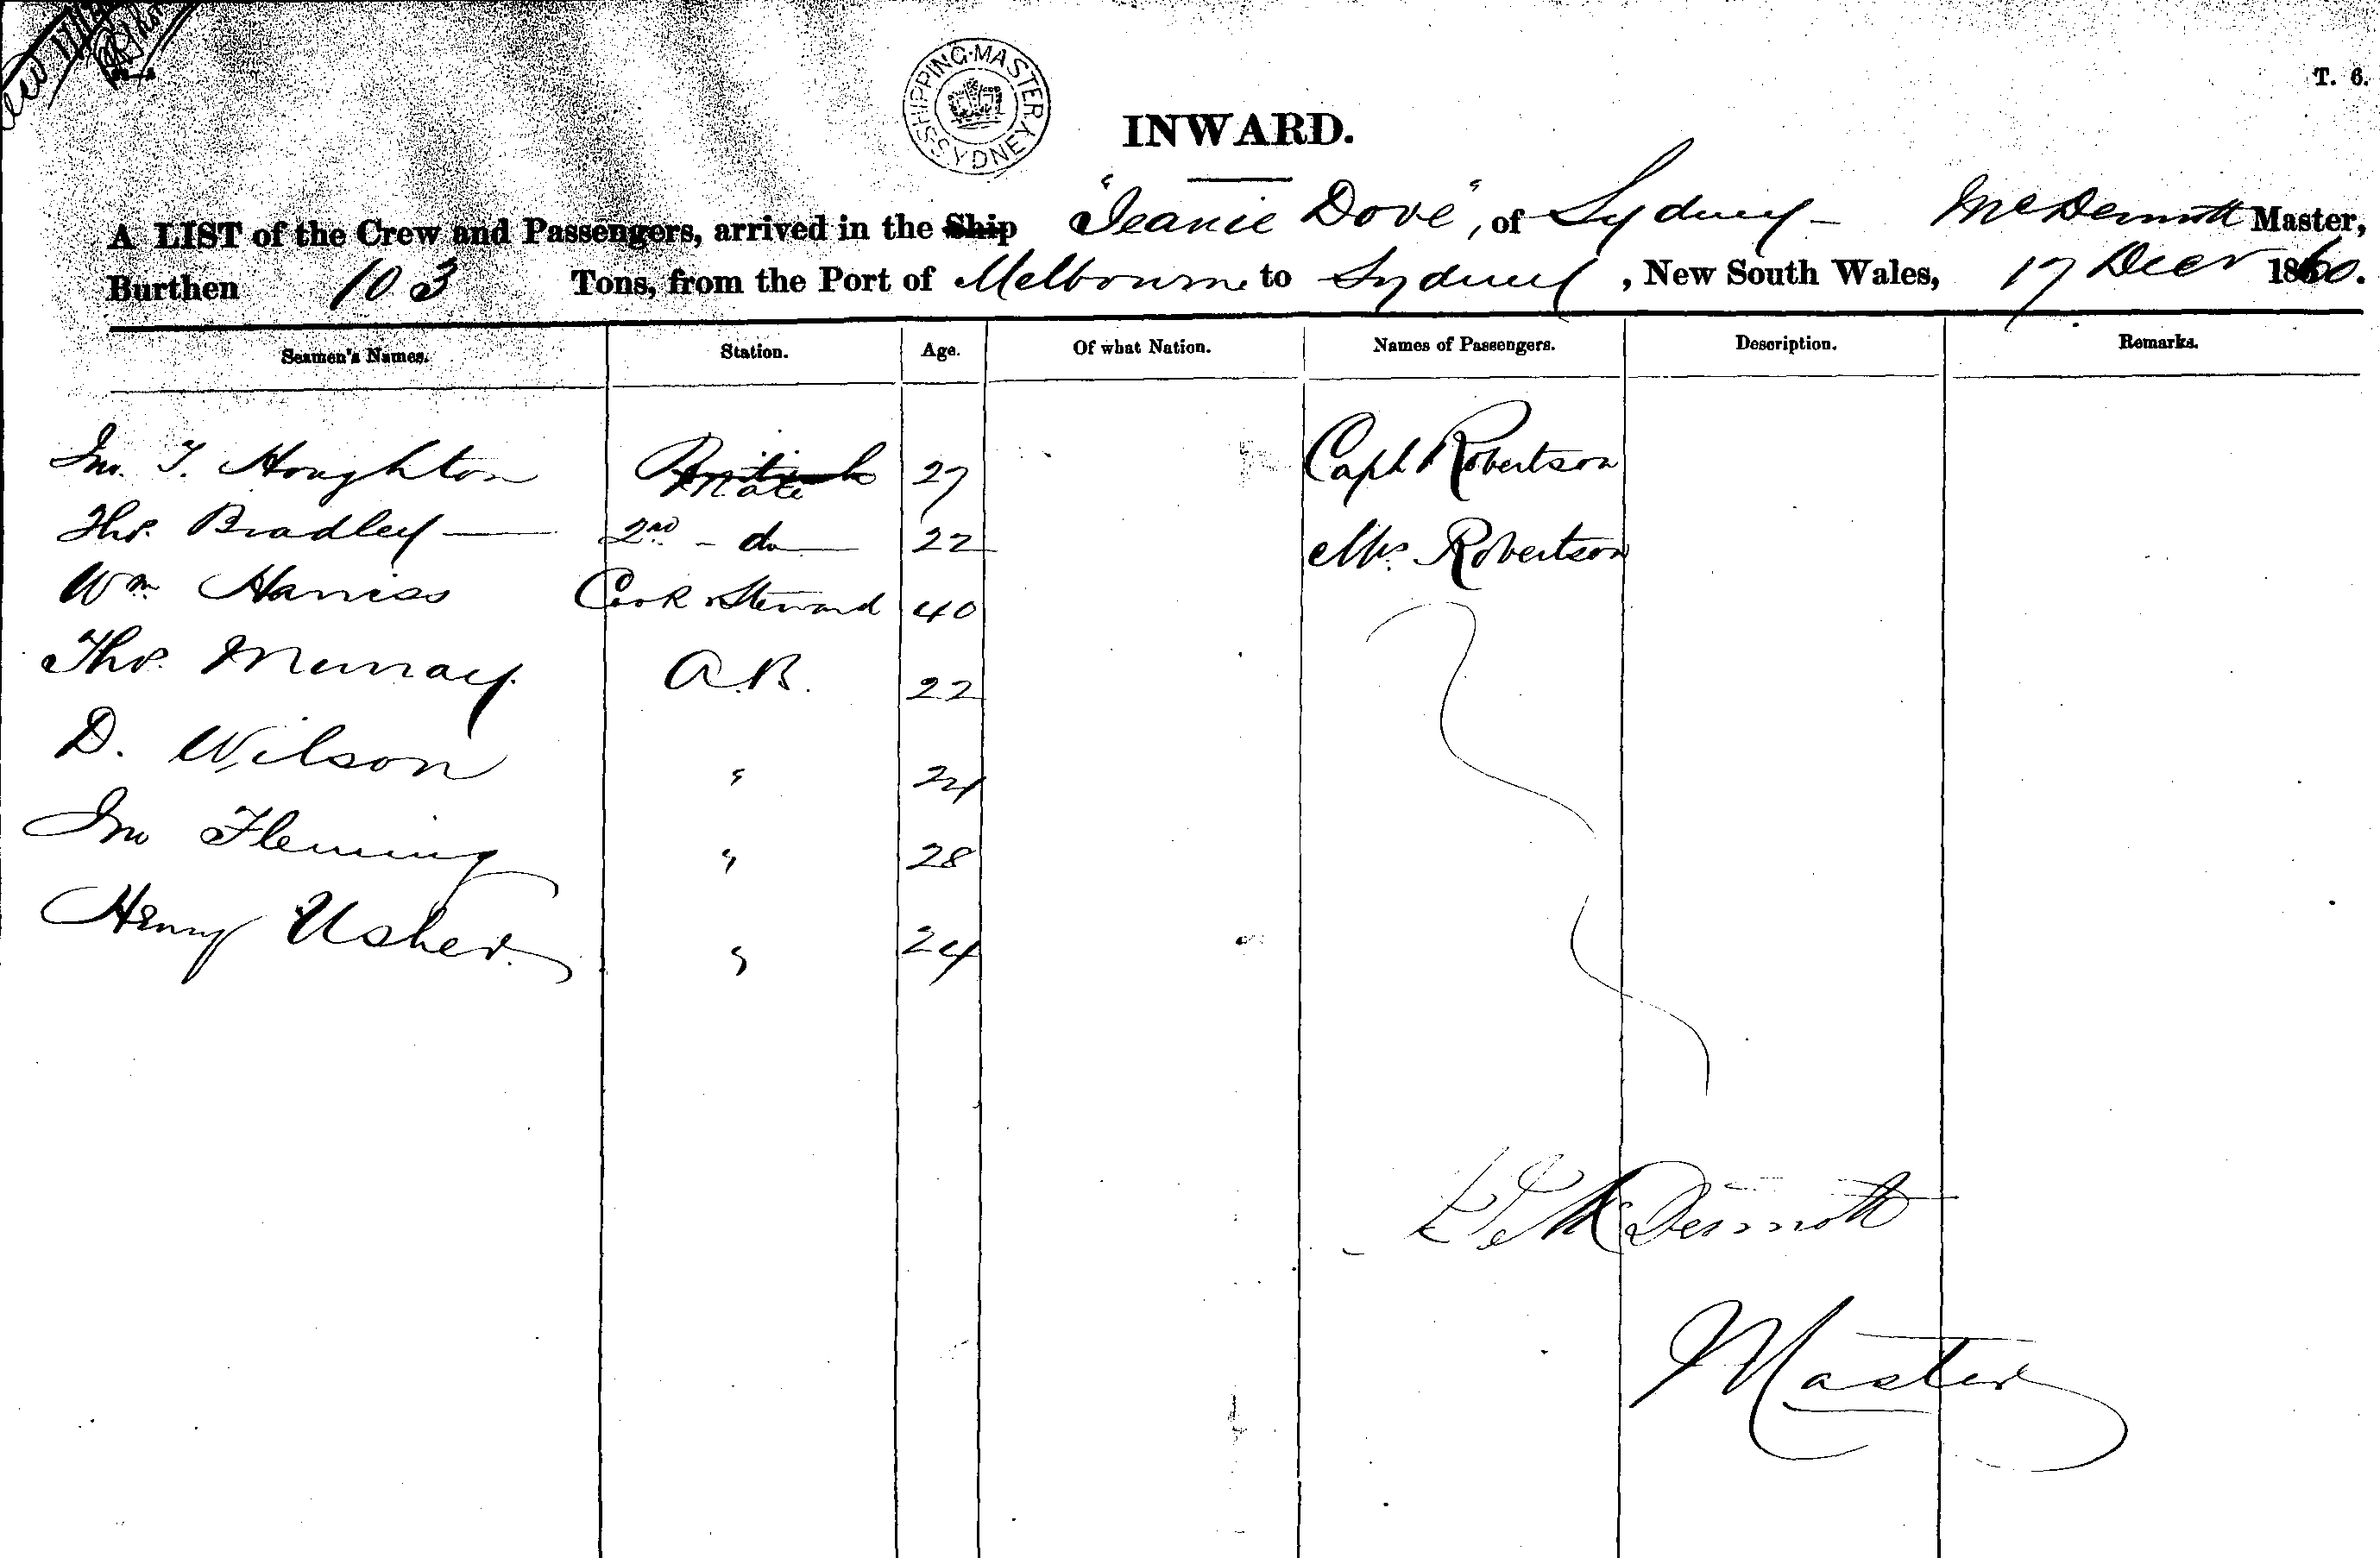 SHIPPING MASTER'S SYDNEY
T. 6.
INWARD.
A LIST of the Crew and Passengers, arrived in the Ship "Jeanie Dove", of Sydney - McDermott Master,
Burthen 103 Tons, from the Port of Melbourne to Sydney, New South Wales, 17 Decr 1860.
Seamen's Names. Station. Age. Of what Nation. Names of Passengers. Description. Remarks.
Jno. T. Houghton Mate 27 Capt Robertson
Thos. Bradley 2nd - do 22 Mrs. Robertson
Wm. Harriss Cook & Steward 40
Thos. Murray. A.B. 22
D. Wilson " 24
Jno Fleming " 28
Henry Usher. " 24
McDermott
Master